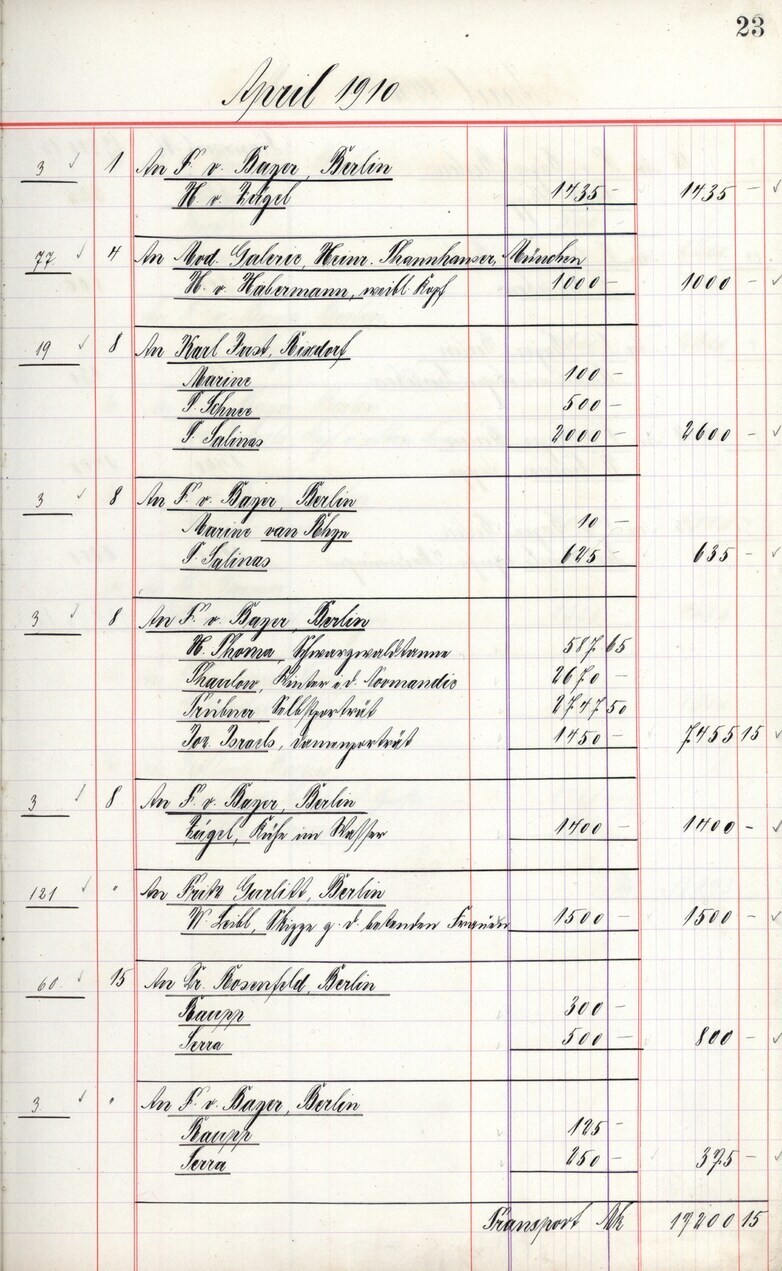 23
April 1910
3 ✓ 1 An F. v. Bayer, Berlin
H. v. Zügel 1435 – 1435 – ✓
77 ✓ 4 An Mod. Galerie, Heinr. Thannhauser, München
H. v. Habermann, weibl. Kopf 1000 – 1000 – ✓
19 ✓ 8 An Karl Fast, Rixdorf
Marine 100 –
P. Schnee 500 –
P. Salinas 2000 – 2600 – ✓
3 ✓ 8 An F. v. Bayer, Berlin
Marine van Rhyn 10 –
P. Salinas 625 – 635 – ✓
3 ✓ 8 An F. v. Bayer, Berlin
H. Thoma, Schwarzwaldtanne 587 65
Thaulow, Winter i. d. Normandie 2670 –
Trübner Selbstporträt 2747 50
Jos. Israels, Damenporträt 1450 – 7455 15 ✓
3 ✓ 8 An F. v. Bayer, Berlin
Zügel, Kühe im Wasser 1400 – 1400 – ✓
121 ✓ " An Fritz Gurlitt, Berlin
W. Leibl, Skizze z. d. betenden Frauen 1500 – 1500 – ✓
60 ✓ 15 An Dr. Rosenfeld, Berlin
Raupp 300 –
Serra 500 – 800 – ✓
3 ✓ " An F. v. Bayer, Berlin
Raupp 125 –
Serra 250 – 375 – ✓
Transport Mk 17200 15